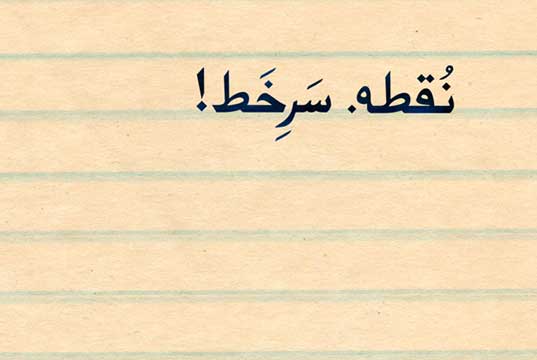 نُقطه. سَرِخَط!